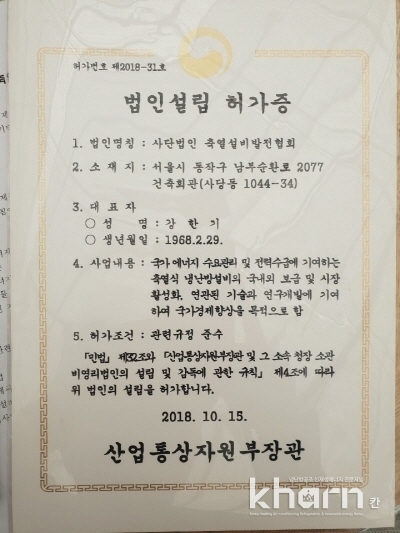 허가번호 제2018-31호
법인설립 허가증
1. 법인명칭 : 사단법인 축열설비발전협회
2. 소 재 지 : 서울시 동작구 남부순환로 2077
건축회관(사당동 1044-34)
3. 대 표 자
○ 성 명 : 강 한 기
○ 생년월일 : 1968.2.29.
4. 사업내용 : 국가 에너지 수요관리 및 전력수급에 기여하는
축열식 냉난방설비의 국내외 보급 및 시장
활성화, 연관된 기술과 연구개발에 기여
하여 국가경제향상을 목적으로 함
5. 허가조건 : 관련규정 준수
「민법」 제32조와 「산업통상자원부장관 및 그 소속 청장 소관
비영리법인의 설립 및 감독에 관한 규칙」 제4조에 따라
위 법인의 설립을 허가합니다.
2018. 10. 15.
산업통상자원부장관
kharn 칸